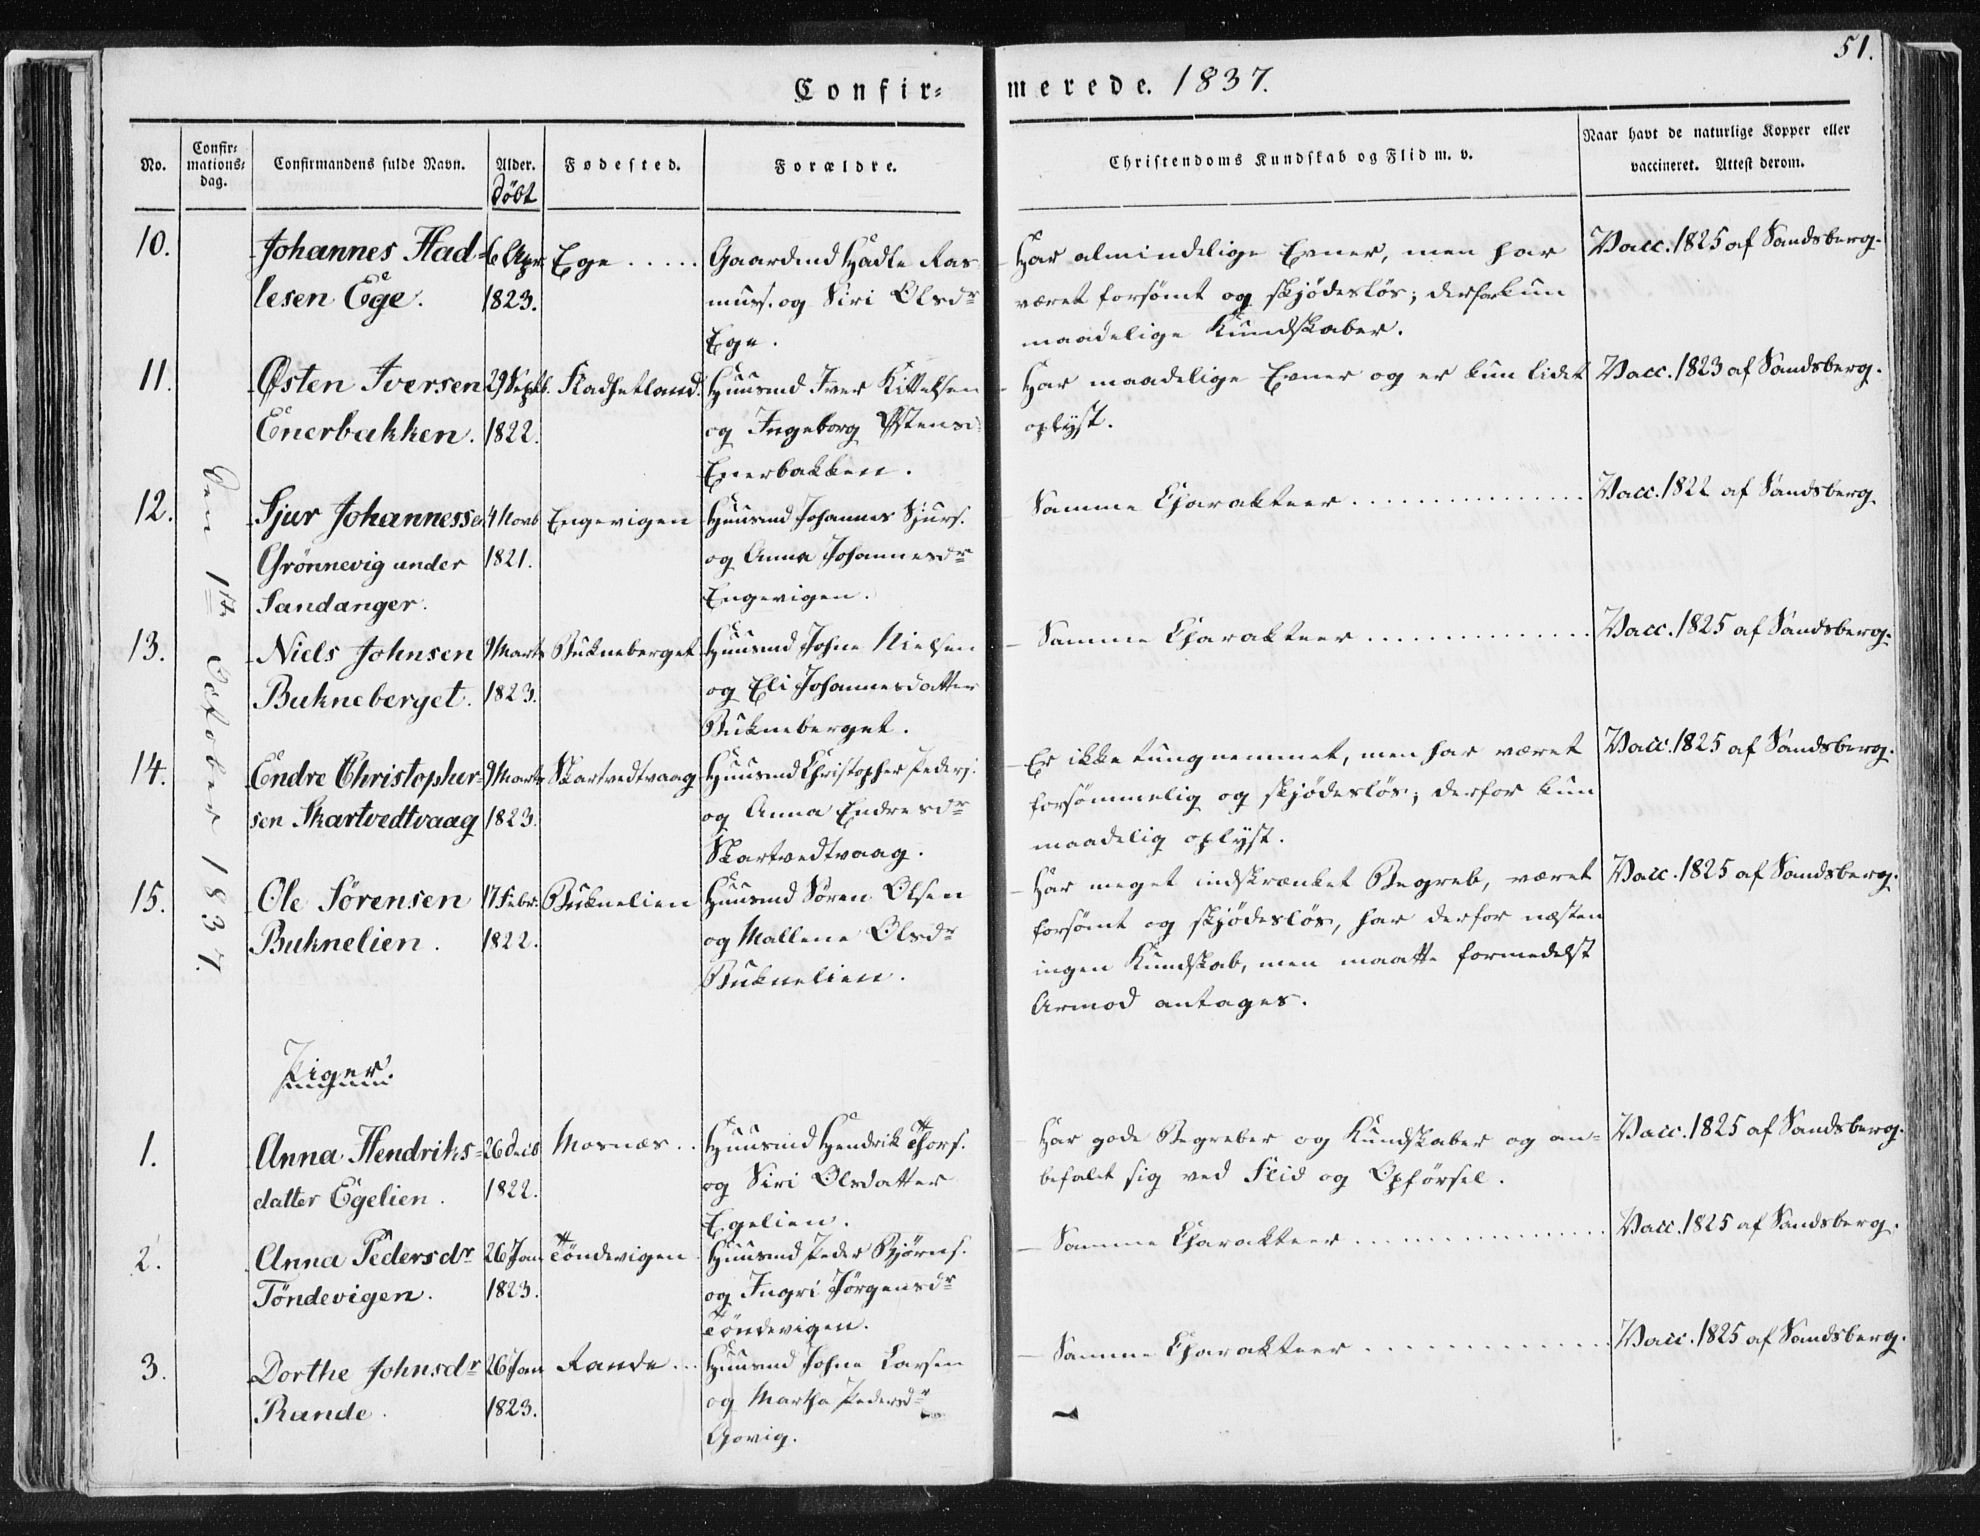 51.
Confir=
merede. 1837.
No.
Confir=
mations=
dag.
Confirmandens fulde Navn.
Alder.
döbt
Fødested.
Forældre.
Christendoms Kundskab og Flid m. v.
Naar havt de naturlige Kopper eller
vaccineret. Attest derom.
Den 1ste October 1837.
10. Johannes Had= 6 Apr. Ege ..... Gaardmd Hadle Ras Har almindelige Evner, men har Vacc. 1825 af Sandsberg.
lesen Ege. 1823. muss. og Siri Olsdr været forsömt og skjödeslös; derfor kun
Ege. maadelige Kundskaber.
11. Østen Iversen 29 Septb. Hadhetland. Huusmd Iver Kittelsen Har maadelige Evner og er kun lidet Vacc. 1823 af Sandsberg.
Enerbakken. 1822. og Ingeborg Østens: oplyst.
Enerbakken.
12. Sjur Johannessen 4 Novb Engevigen Huusmd Johannes Sjurs. Samme Charakteer ............... Vacc. 1822 af Sandsberg.
Grönnevig under 1821. og Anna Johannesdr
Sandanger. Engevigen.
13. Niels Johnsen 9 Marts Bukneberget Huusmd Johne Nielsen Samme Charakteer ............... Vacc. 1825 af Sandsberg.
Bukneberget. 1823. og Eli Johannesdatter
Bukneberget.
14. Endre Christopher= 9 Marts Skartvedtvaag Huusmd Christopher Peders. Er ikke tungnemmet, men har været Vacc. 1825 af Sandsberg.
sen Skartvedtvaag 1823. og Anna Endresdr forsömmelig og skjödeslös; derfor kun
Skartvedtvaag. maadelig oplyst.
15. Ole Sörensen 17 Febr. Buknelien Huusmd Sören Olsen Har meget indskrænket Begreb, været Vacc. 1825 af Sandsberg.
Buknelien. 1822. og Mallene Olsdr forsömt og skjödeslös, har derfor næsten
Buknelien. ingen Kundskab, men maatte formedelst
Armod antages.
Piger.
1. Anna Hendriks= 26 Decb Mosnæs .. Huusmd Hendrik Thors. Har gode Begreber og Kundskaber og an= Vacc. 1825 af Sandsberg.
datter Egelien. 1822. og Siri Olsdatter befalet sig ved Flid og Opförsel.
Egelien.
2. Anna Pedersdr 26 Jan Töndevigen Huusmd Peder Bjørns. Samme Charakteer ............... Vacc. 1825 af Sandsberg.
Töndevigen. 1823. og Ingri Jörgensdr
Töndevigen.
3. Dorthe Johnsdr 26 Jan Rande ... Huusmd Johne Larsen Samme Charakteer ............... Vacc. 1825 af Sandsberg.
Rande. 1823. og Martha Pedersdr
Govig.